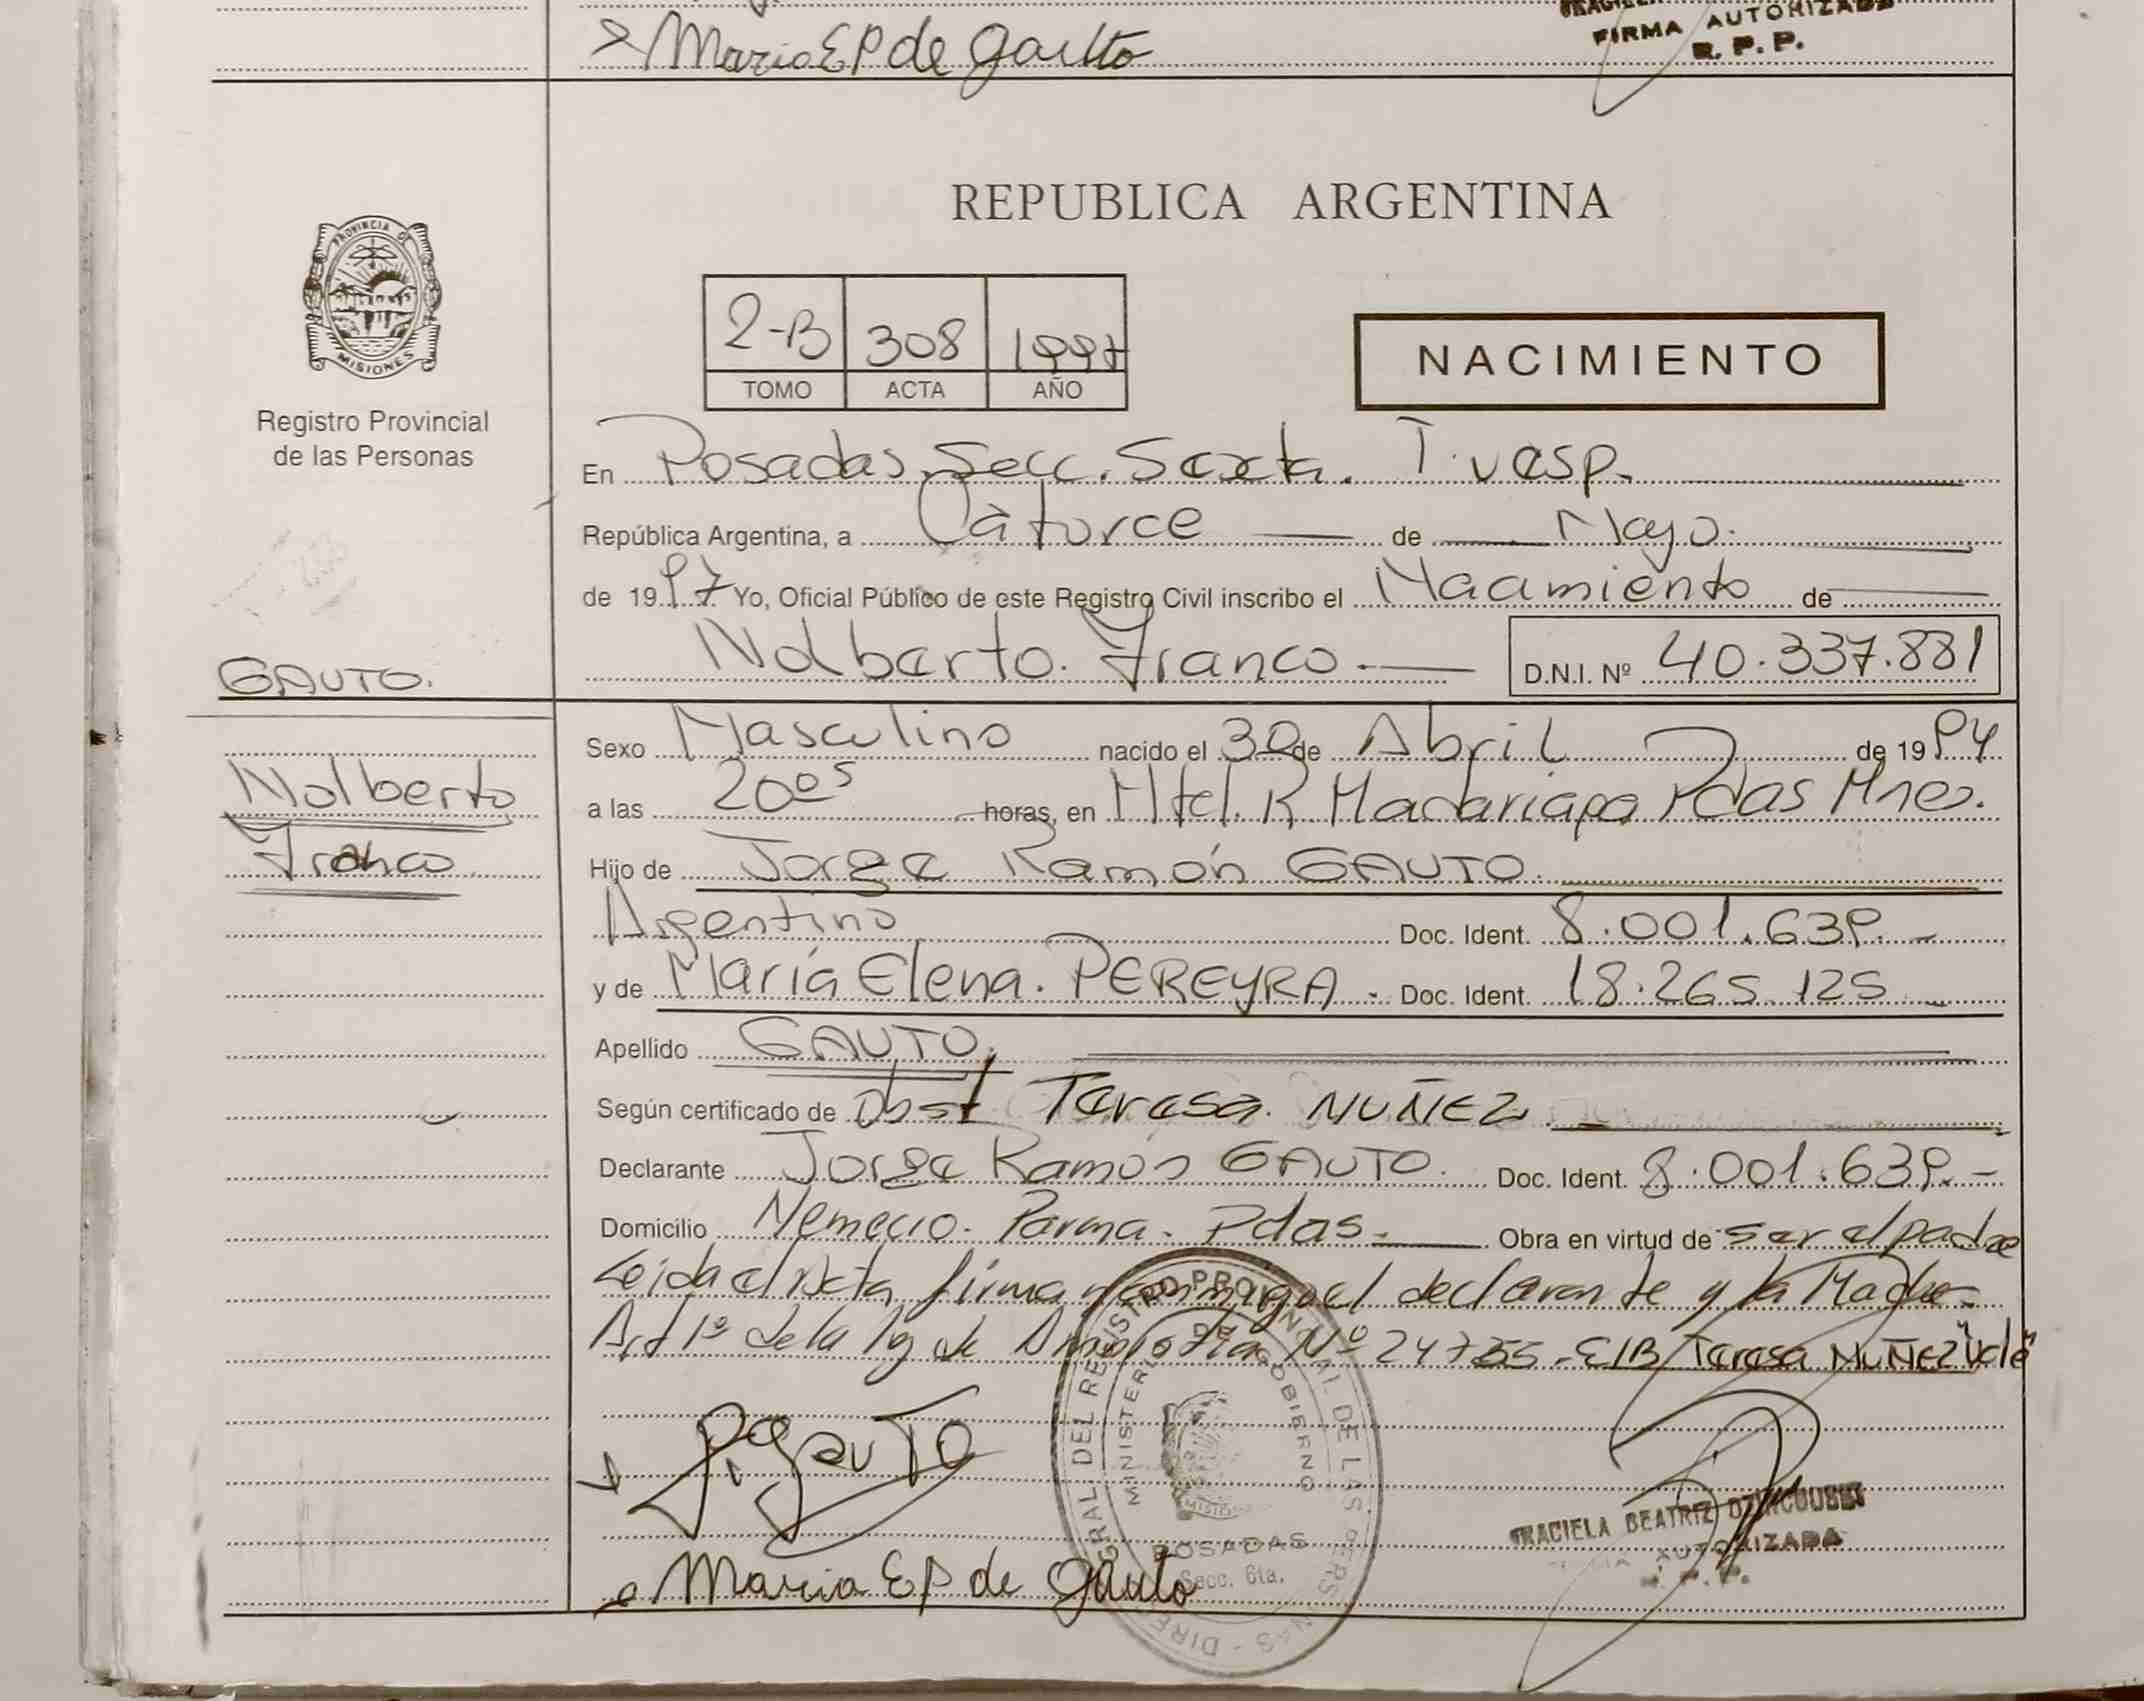 Maria EP de Gauto
FIRMA AUTORIZADA
R. P. P.
PROVINCIA DE
MISIONES
Registro Provincial
de las Personas
REPUBLICA ARGENTINA
2-B 308 1997
TOMO ACTA AÑO
NACIMIENTO
En Posadas, Secc. Sexta. T. vesp.
República Argentina, a Catorce de Mayo.
de 1997 Yo, Oficial Público de este Registro Civil inscribo el Nacimiento de
GAUTO. Nolberto Franco D.N.I. Nº 40.337.881
Sexo Masculino nacido el 30 de Abril de 1994
Nolberto a las 20 05 horas, en Htal. R Madariaga Pdas Mnes.
Franco Hijo de Jorge Ramón GAUTO.
Argentino Doc. Ident. 8.001.639.-
y de María Elena. PEREYRA. Doc. Ident. 18.265.125
Apellido GAUTO.
Según certificado de Obst Teresa NUÑEZ.
Declarante Jorge Ramón GAUTO. Doc. Ident. 8.001.639.-
Domicilio Nemecio Parma. Pdas. Obra en virtud de ser el padre
Leida el Acta firma conmigo el declarante y la Madre
Art 1º de la ley de Amnistia Nº 24755. E/B/ Teresa NUÑEZ "vale"
J. Gauto
GRACIELA BEATRIZ
AUTORIZADA
Maria EP de Gauto
DIRECCION GRAL. DEL REGISTRO PROVINCIAL DE LAS PERSONAS
MINISTERIO DE GOBIERNO
MISIONES
POSADAS
Secc. 6ta.